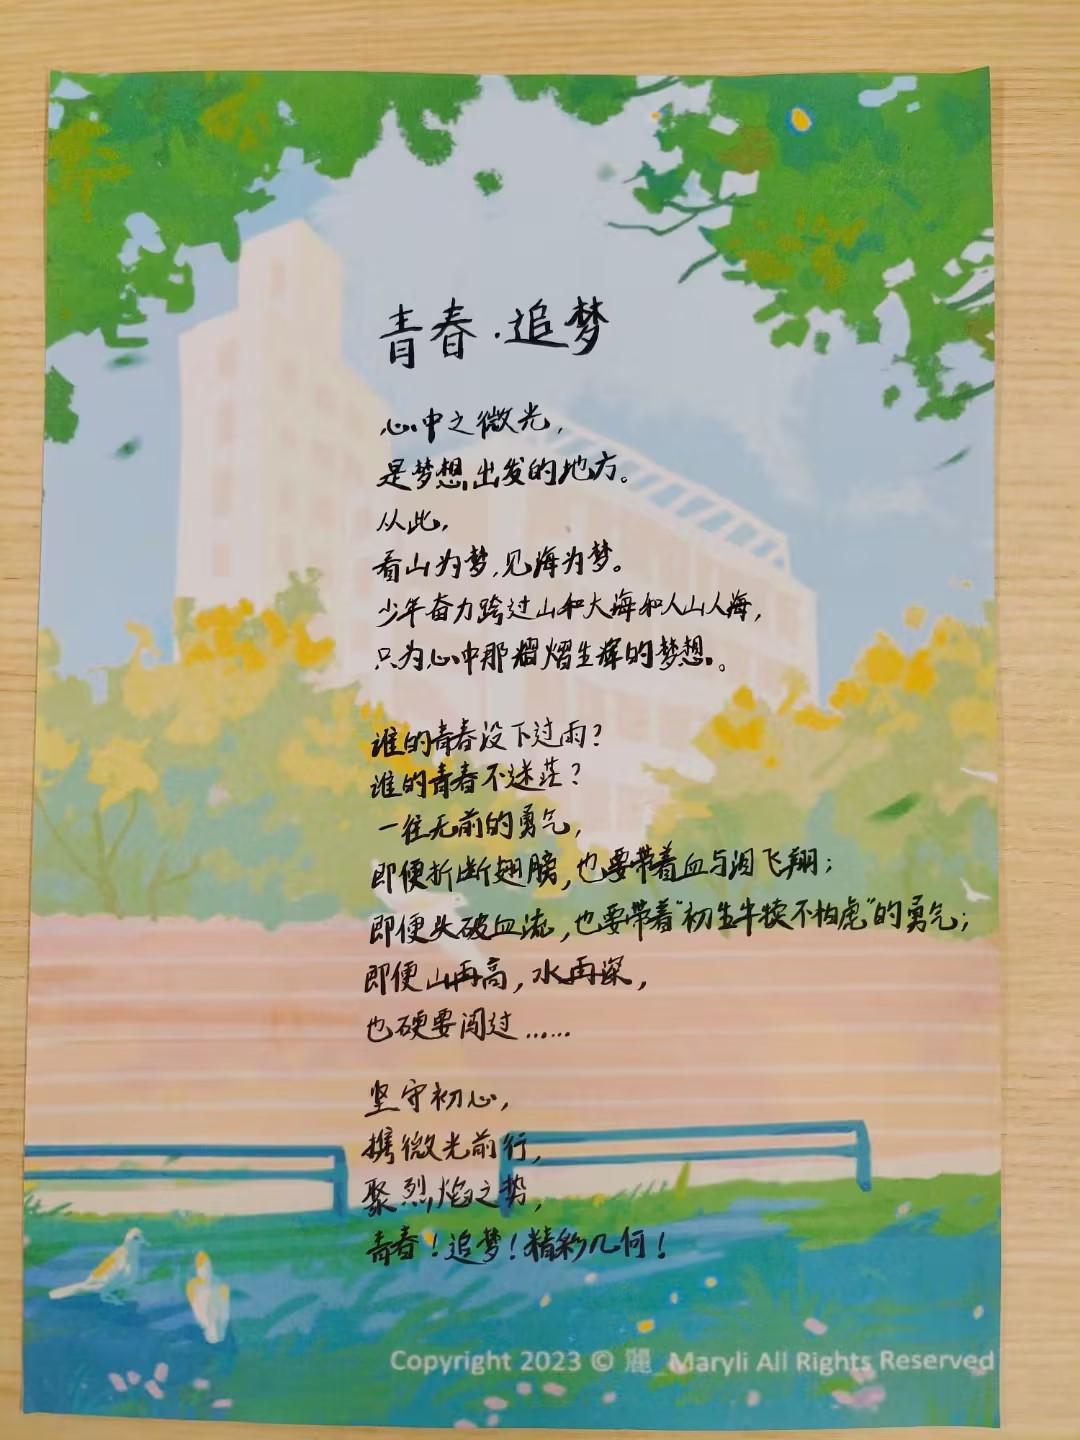 青春·追梦
心中之微光，
是梦想出发的地方。
从此，
看山为梦，见海为梦。
少年奋力跨过山和大海和人山人海，
只为心中那熠熠生辉的梦想。
谁的青春没下过雨？
谁的青春不迷茫？
一往无前的勇气，
即便折断翅膀，也要带着血与泪飞翔；
即便头破血流，也要带着“初生牛犊不怕虎”的勇气；
即便山再高，水再深，
也硬要闯过……
坚守初心，
携微光前行，
聚烈焰之势，
青春！追梦！精彩几何！
Copyright 2023 © 麗_Maryli All Rights Reserved